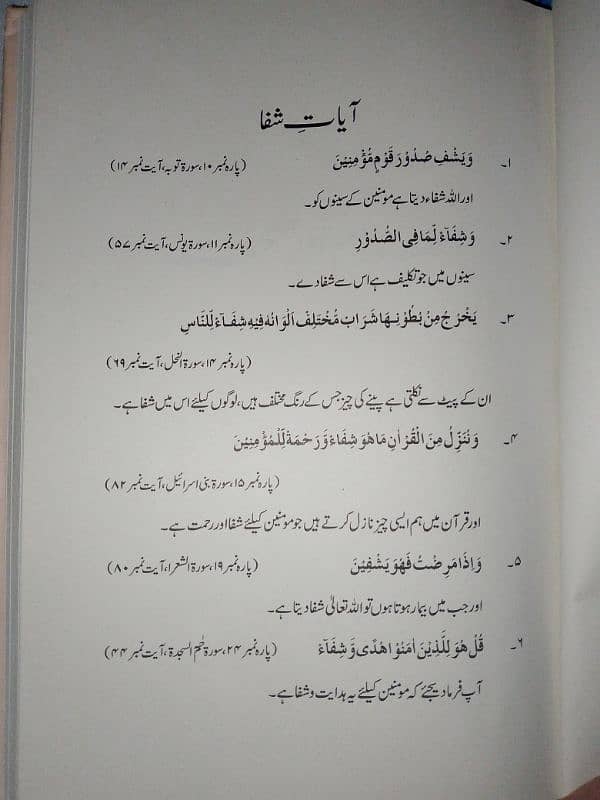 آیاتِ شفا
۱۔ وَیَشْفِ صُدُوْرَ قَوْمٍ مُّؤْمِنِیْنَ (پارہ نمبر ۱۰، سورۃ توبہ، آیت نمبر ۱۴)
اور اللہ شفاء دیتا ہے مومنین کے سینوں کو۔
۲۔ وَشِفَآءٌ لِّمَا فِی الصُّدُوْرِ (پارہ نمبر ۱۱، سورۃ یونس، آیت نمبر ۵۷)
سینوں میں جو تکلیف ہے اس سے شفا دے۔
۳۔ یَخْرُجُ مِنْ بُطُوْنِہَا شَرَابٌ مُّخْتَلِفٌ اَلْوَانُہٗ فِیْہِ شِفَآءٌ لِّلنَّاسِ
(پارہ نمبر ۱۴، سورۃ النحل، آیت نمبر ۶۹)
ان کے پیٹ سے نکلتی ہے پینے کی چیز جس کے رنگ مختلف ہیں، لوگوں کیلئے اس میں شفا ہے۔
۴۔ وَنُنَزِّلُ مِنَ الْقُرْاٰنِ مَا ھُوَ شِفَآءٌ وَّرَحْمَۃٌ لِّلْمُؤْمِنِیْنَ
(پارہ نمبر ۱۵، سورۃ بنی اسرائیل، آیت نمبر ۸۲)
اور قرآن میں ہم ایسی چیز نازل کرتے ہیں جو مومنین کیلئے شفا اور رحمت ہے۔
۵۔ وَاِذَا مَرِضْتُ فَھُوَ یَشْفِیْنَ (پارہ نمبر ۱۹، سورۃ الشعرا، آیت نمبر ۸۰)
اور جب میں بیمار ہوتا ہوں تو اللہ تعالیٰ شفا دیتا ہے۔
۶۔ قُلْ ھُوَ لِلَّذِیْنَ اٰمَنُوْا ھُدًی وَّشِفَآءٌ (پارہ نمبر ۲۴، سورۃ حٰمٓ السجدۃ، آیت نمبر ۴۴)
آپ فرما دیجئے کہ مومنین کیلئے یہ ہدایت و شفا ہے۔